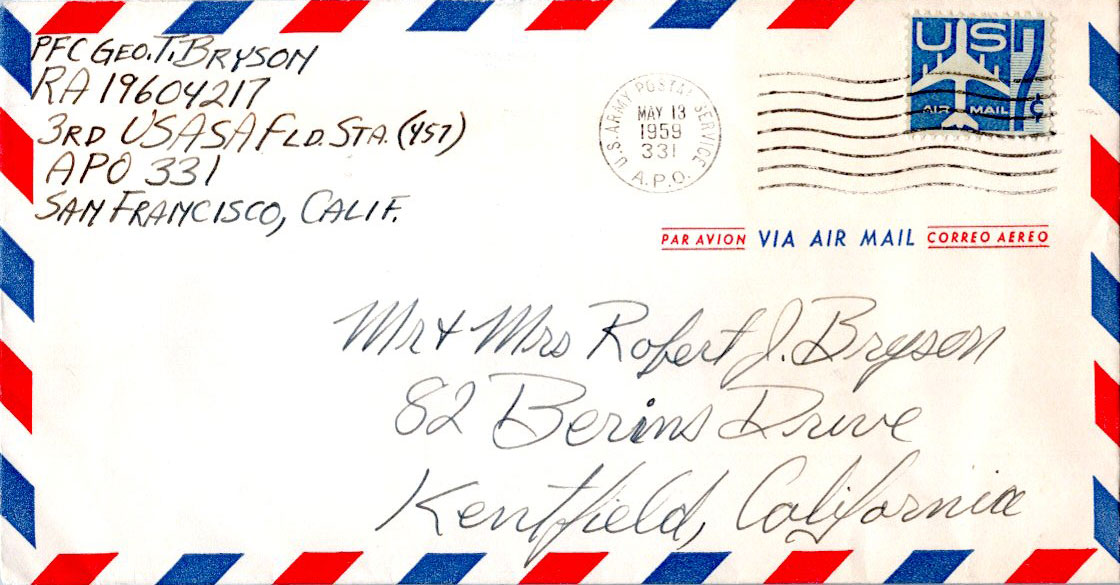 PFC GEO. T. BRYSON
RA 19604217
3RD USASA FLD. STA. (457)
APO 331
SAN FRANCISCO, CALIF.
U.S. ARMY POSTAL SERVICE
MAY 13
1959
331
A.P.O.
US 7¢
AIR MAIL
PAR AVION VIA AIR MAIL CORREO AEREO
Mr & Mrs Robert J. Bryson
82 Berins Drive
Kentfield, California